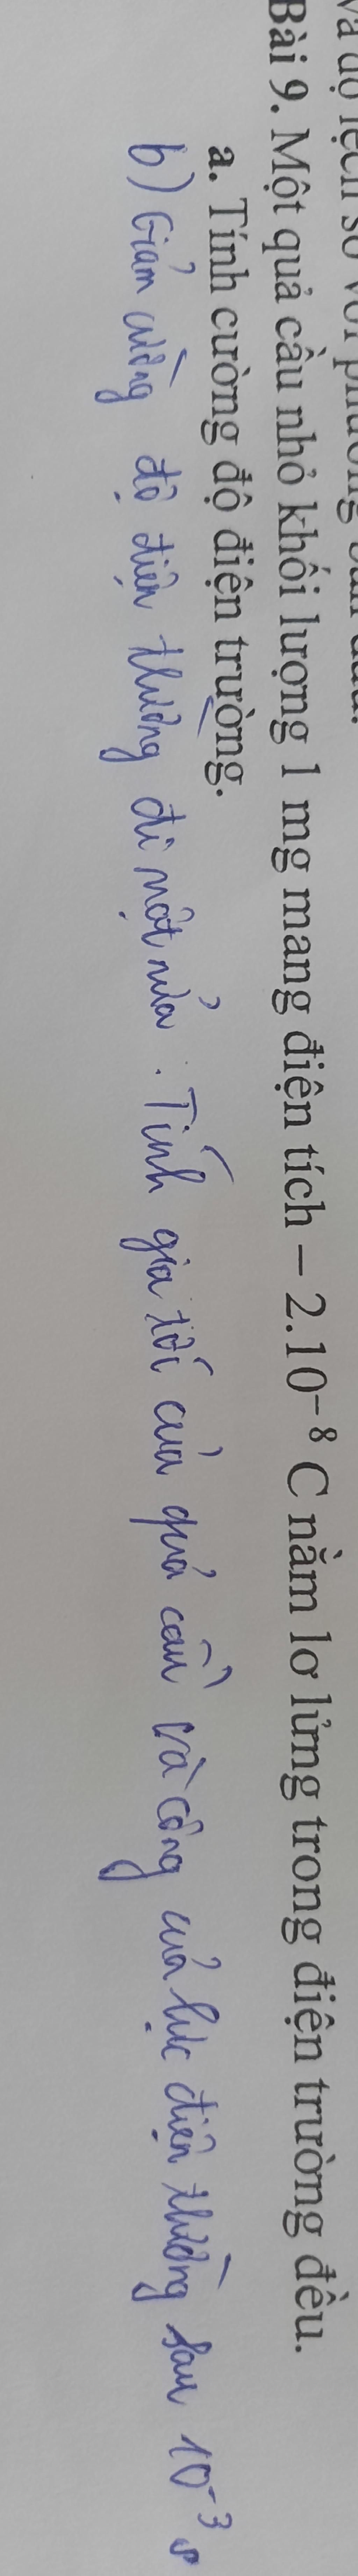 và độ lệch so với phương ban đầu.
Bài 9. Một quả cầu nhỏ khối lượng 1 mg mang điện tích – 2.10⁻⁸ C nằm lơ lửng trong điện trường đều.
a. Tính cường độ điện trường.
b) Giảm cường độ điện trường đi một nửa. Tính gia tốc của quả cầu và công của lực điện trường sau 10⁻³ s